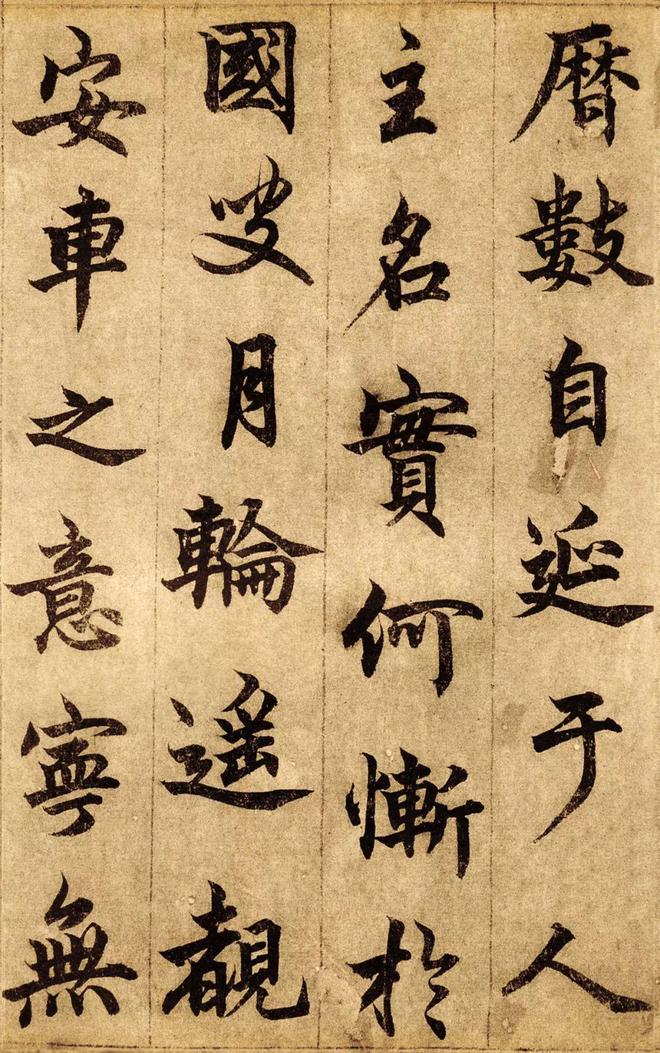 曆數自延于人
主名實何慚於
國叟月輪遙覩
安車之意寧無